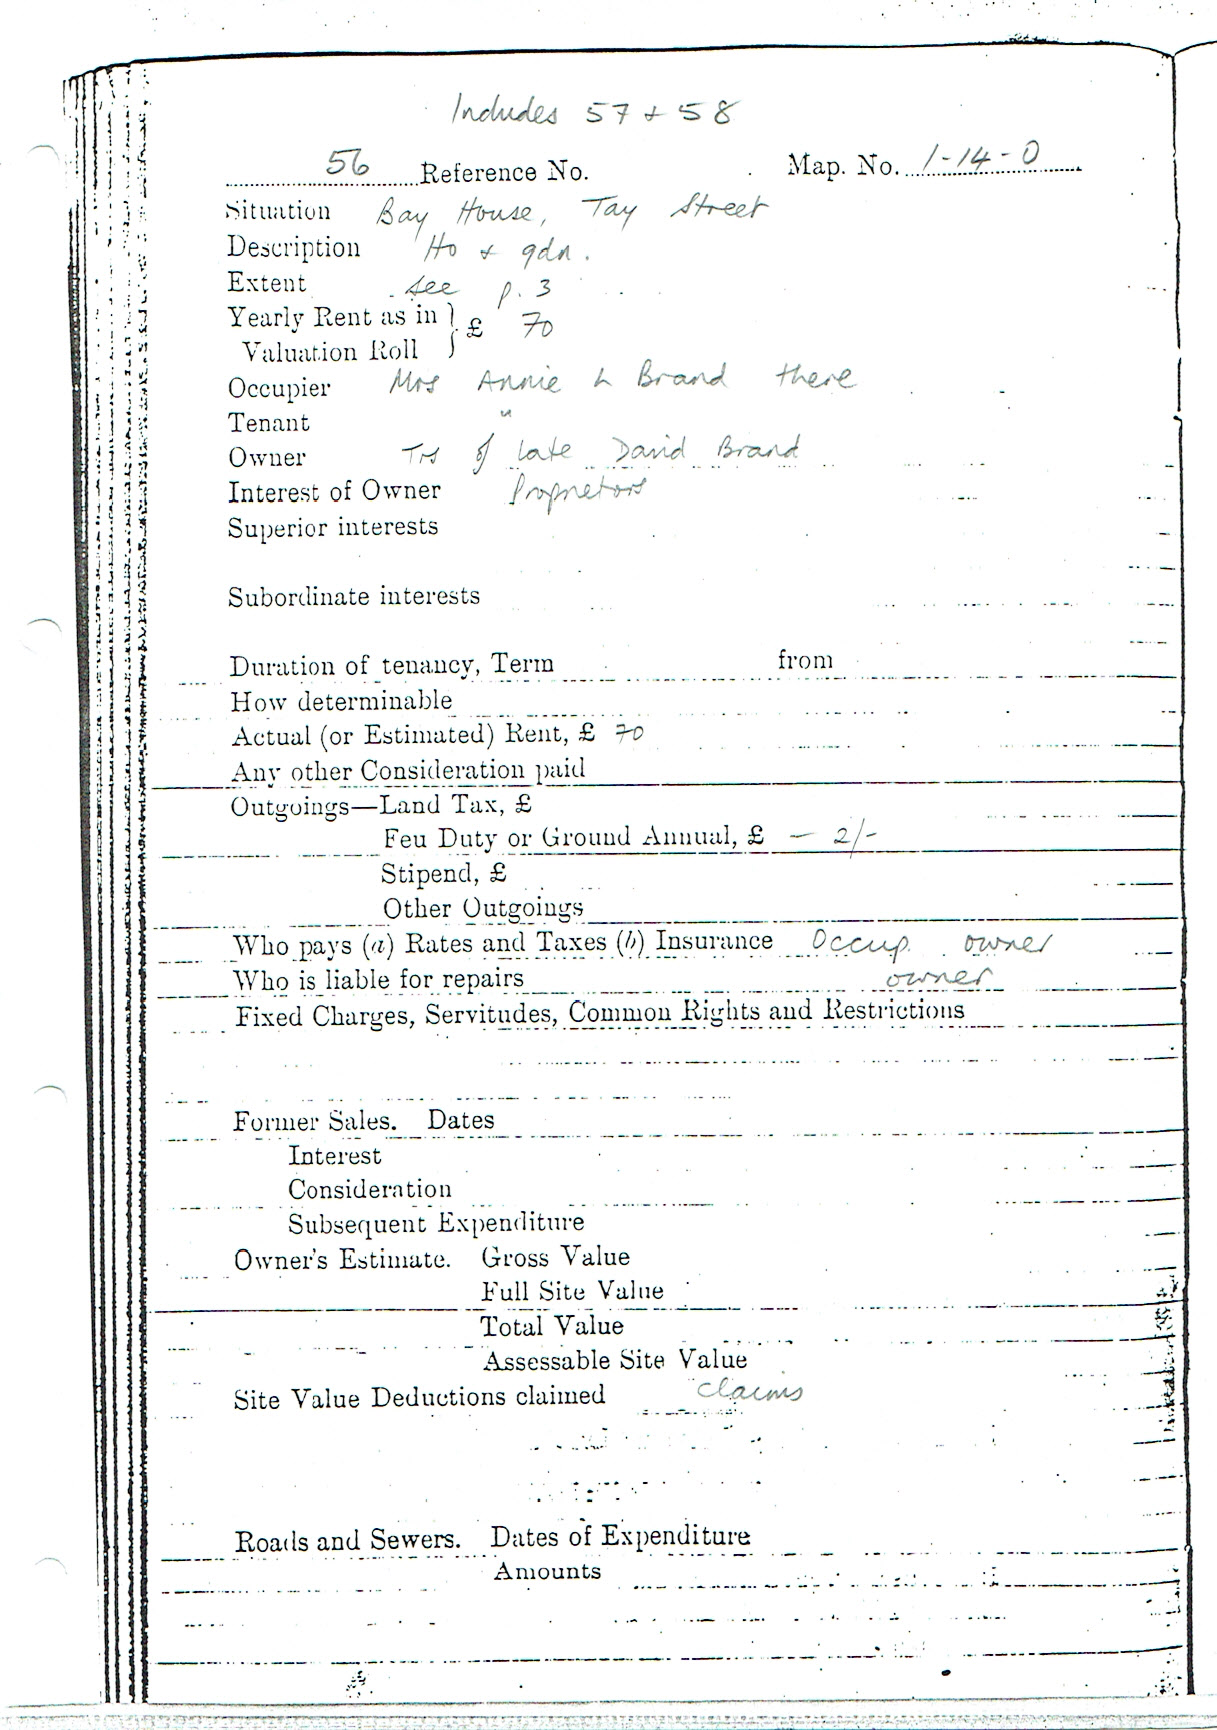 Includes 57 + 58
56 Reference No. Map. No. 1-14-0
Situation Bay House, Tay Street
Description Ho + gdn.
Extent see p. 3
Yearly Rent as in } £ 70
Valuation Roll
Occupier Mrs Annie L Brand there
Tenant "
Owner Trs of late David Brand
Interest of Owner Proprietors
Superior interests
Subordinate interests
Duration of tenancy, Term from
How determinable
Actual (or Estimated) Rent, £ 70
Any other Consideration paid
Outgoings—Land Tax, £
Feu Duty or Ground Annual, £ — 2/-
Stipend, £
Other Outgoings
Who pays (a) Rates and Taxes (b) Insurance Occup. owner
Who is liable for repairs owner
Fixed Charges, Servitudes, Common Rights and Restrictions
Former Sales. Dates
Interest
Consideration
Subsequent Expenditure
Owner's Estimate. Gross Value
Full Site Value
Total Value
Assessable Site Value
Site Value Deductions claimed claims
Roads and Sewers. Dates of Expenditure
Amounts